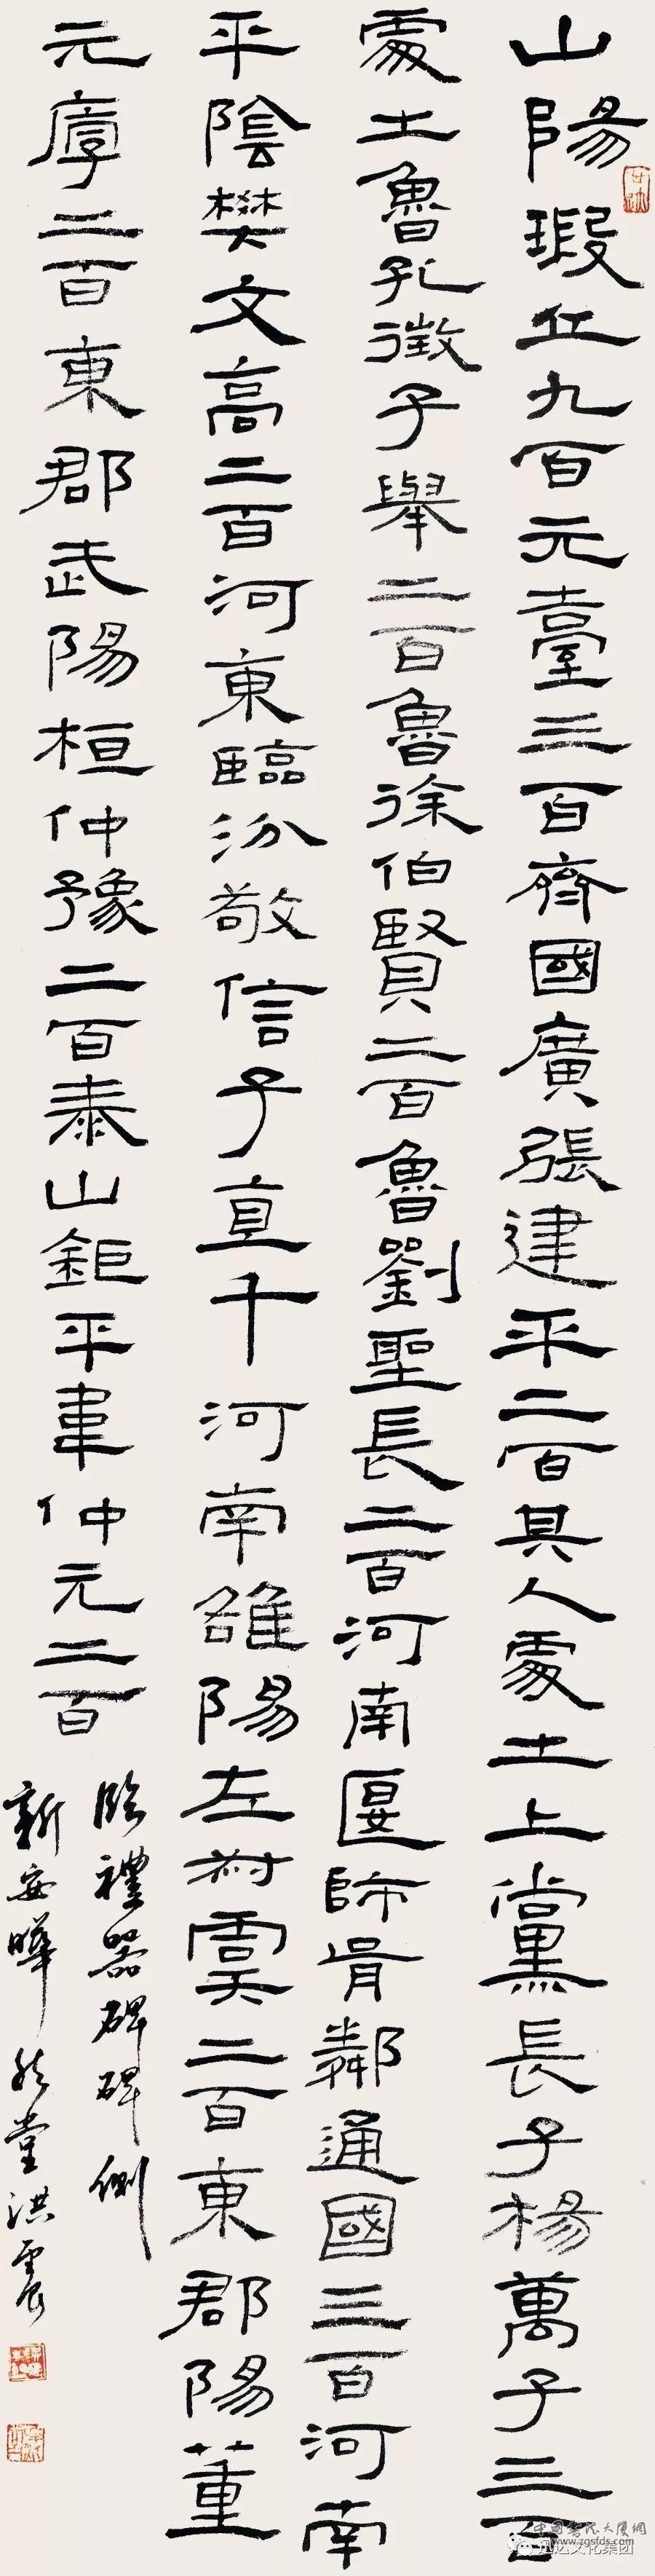 山陽瑕丘九百元臺三百齊國廣張建平二百其人處土上黨長子楊萬子三百
處土魯孔徵子舉二百魯徐伯賢二百魯劉聖長二百河南匽師胥鄰通國三百河南
平陰樊文高二百河東臨汾敬信子直千河南雒陽左叔虞二百東郡陽董
元厚二百東郡武陽桓仲豫二百泰山鉅平韋仲元二百
臨禮器碑碑側
新安曄然堂洪雲
中國書法大廈網
www.zgsfds.com
弘达文化集团